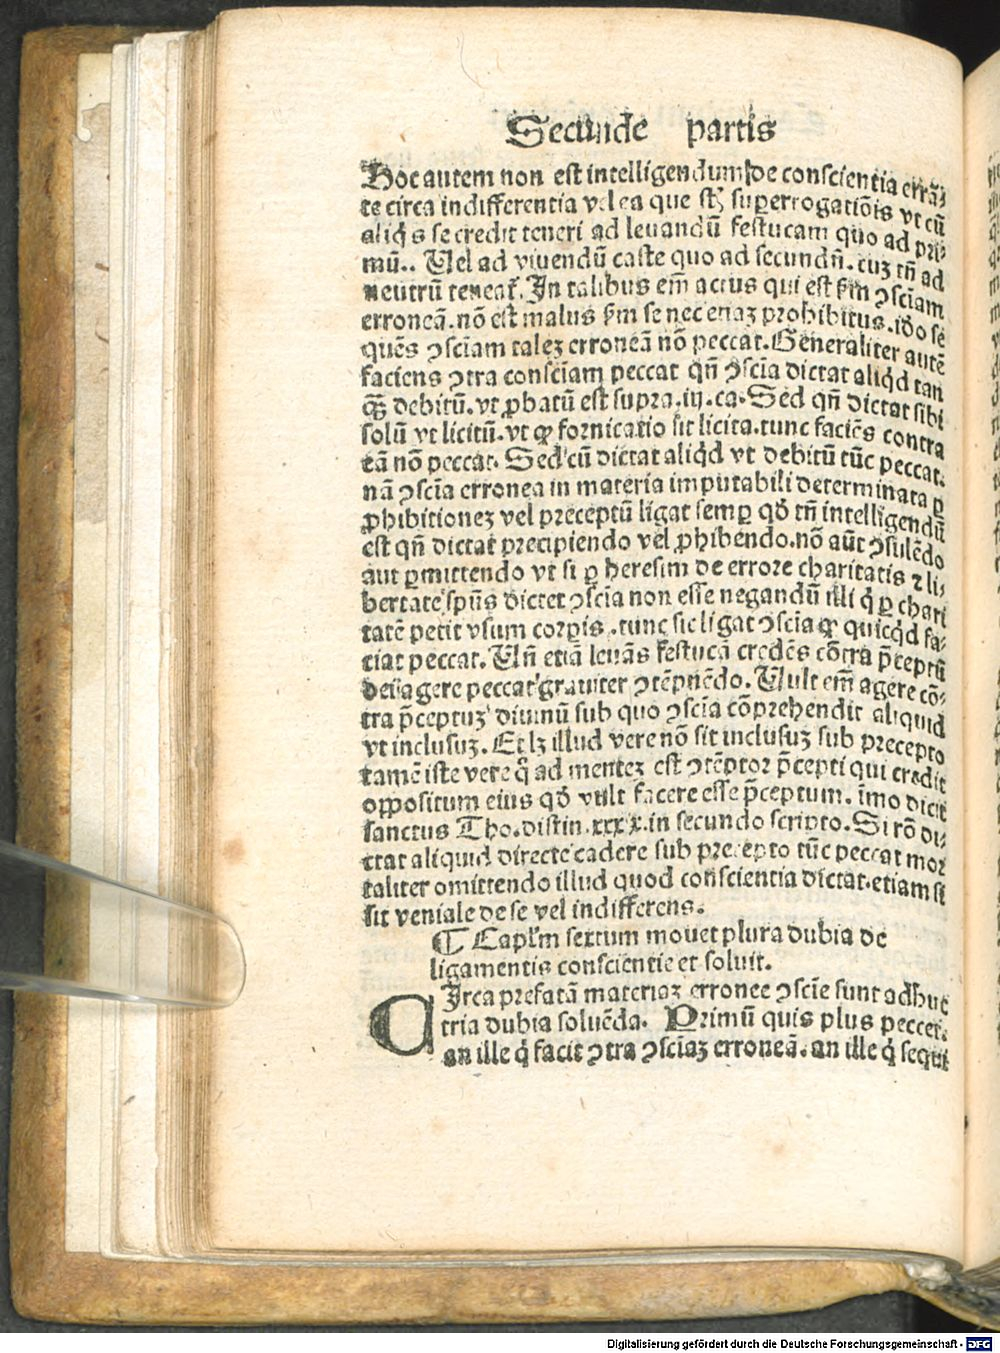 Secunde partis
Hoc autem non est intelligendum de conscientia errā⸗
te circa indifferentia vel ea que sūt superrogatiōis vt cū
aliq̇s se credit teneri ad leuandū festucam quo ad pri⸗
mū.. Uel ad viuendū caste quo ad secundū. cuꝫ tn̄ ad
neutrū teneat᷑. In talibus em̄ actus qui est ẜm ↄsciam
erroneā. nō est malus ẜm se nec etiaꝫ prohibitus. iđo se
quēs ↄsciam taleꝫ erroneā nō peccat. Generaliter autē
faciens ↄtra consciam peccat qn̄ ↄscia dictat aliq̇d tan
qȝ debitū. vt ꝓbatū est supra. iij. ca. Sed qn̄ dictat sibi
solū vt licitū. vt ꝙ fornicatio sit licita. tunc faciēs contra
eā nō peccat. Sed cū dictat aliq̇d vt debitū tūc peccat.
nā ↄscīa erronea in materia imputabili determinata ꝑ
ꝓhibitioneꝫ vel preceptū ligat semꝑ qđ tn̄ intelligendū
est qn̄ dictat precipiendo vel ꝓhibendo. nō aūt ↄsulēdo
aut ꝑmittendo vt si ꝑ heresim de errore charitatis ⁊ li⸗
bertate spūs dictet ↄscia non esse negandū illi q̇ ꝑ chari
tatē petit vsum corpis. tunc sic ligat ↄscia ꝙ quicq̇d fa⸗
ciat peccat. Uñ etiā leuās festucā credēs cōtra p̄ceptū
dei agere peccat grauiter ↄtēpnēdo. Uult em̄ agere cō⸗
tra p̄ceptuꝫ diuinū sub quo ↄscia cōprehendit aliquid
vt inclusuꝫ. Et lꝫ illud vere nō sit inclusuꝫ sub precepto
tamē iste vere q̊ ad menteꝫ est ↄtēptor p̄cepti qui credit
oppositum eius qđ vult facere esse p̄ceptum. īmo dicit
sanctus Tho. distin. xxxix. in secundo scripto. Si rō di⸗
ctat aliquid directe cadere sub precepto tūc peccat mor
taliter omittendo illud quod conscientia dictat. etiam si
sit veniale de se vel indifferens.
¶ Capl'm sextum mouet plura dubia de
ligamentis conscientie et soluit.
CIrca prefatā materiaꝫ erronee ↄscie sunt adhuc
tria dubia soluēda. Primū quis plus peccet.
an ille q̇ facit ↄtra ↄsciaꝫ erroneā. an ille q̇ sequi
Digitalisierung gefördert durch die Deutsche Forschungsgemeinschaft - DFG